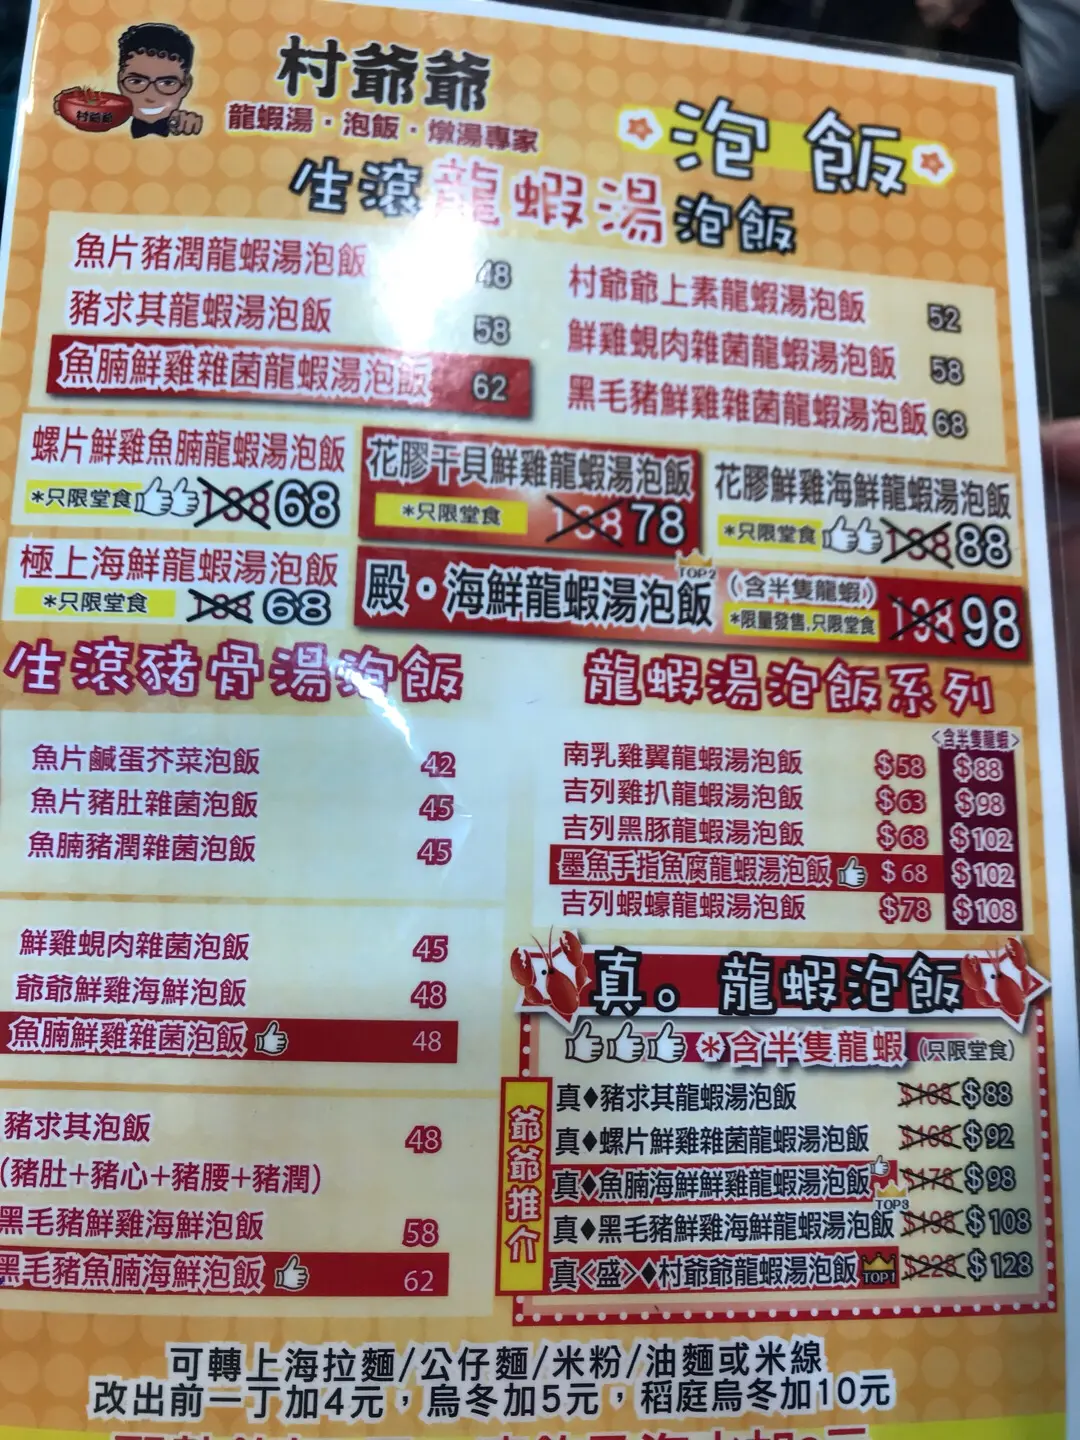 村爺爺
村爺爺
龍蝦湯・泡飯・燉湯專家
泡飯
生滾龍蝦湯泡飯
魚片豬潤龍蝦湯泡飯 48
豬求其龍蝦湯泡飯 58
魚腩鮮雞雜菌龍蝦湯泡飯 62
村爺爺上素龍蝦湯泡飯 52
鮮雞蜆肉雜菌龍蝦湯泡飯 58
黑毛豬鮮雞雜菌龍蝦湯泡飯 68
螺片鮮雞魚腩龍蝦湯泡飯
*只限堂食 138 68
花膠干貝鮮雞龍蝦湯泡飯
*只限堂食 138 78
花膠鮮雞海鮮龍蝦湯泡飯
*只限堂食 88
極上海鮮龍蝦湯泡飯
*只限堂食 68
TOP2
殿・海鮮龍蝦湯泡飯 (含半隻龍蝦)
*限量發售,只限堂食 198 98
生滾豬骨湯泡飯
魚片鹹蛋芥菜泡飯 42
魚片豬肚雜菌泡飯 45
魚腩豬潤雜菌泡飯 45
鮮雞蜆肉雜菌泡飯 45
爺爺鮮雞海鮮泡飯 48
魚腩鮮雞雜菌泡飯 48
豬求其泡飯 48
(豬肚+豬心+豬腰+豬潤)
黑毛豬鮮雞海鮮泡飯 58
黑毛豬魚腩海鮮泡飯 62
龍蝦湯泡飯系列
<含半隻龍蝦>
南乳雞翼龍蝦湯泡飯 $58 $88
吉列雞扒龍蝦湯泡飯 $63 $98
吉列黑豚龍蝦湯泡飯 $68 $102
墨魚手指魚腐龍蝦湯泡飯 $68 $102
吉列蝦蠔龍蝦湯泡飯 $78 $108
真。龍蝦泡飯
*含半隻龍蝦 (只限堂食)
爺爺推介
真♦豬求其龍蝦湯泡飯 $168 $88
真♦螺片鮮雞雜菌龍蝦湯泡飯 $168 $92
真♦魚腩海鮮鮮雞龍蝦湯泡飯 $178 $98
TOP3
真♦黑毛豬鮮雞海鮮龍蝦湯泡飯 $198 $108
真<盛>♦村爺爺龍蝦湯泡飯 TOP1 $228 $128
可轉上海拉麵/公仔麵/米粉/油麵或米線
改出前一丁加4元，烏冬加5元，稻庭烏冬加10元